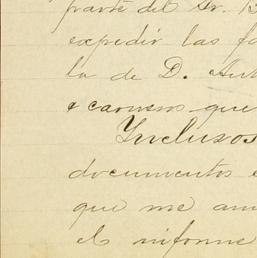 parte del Sr. B
expedir las fo
la de D. Ant
e carneros que
Incluzos
documentos e
que me am
el informe